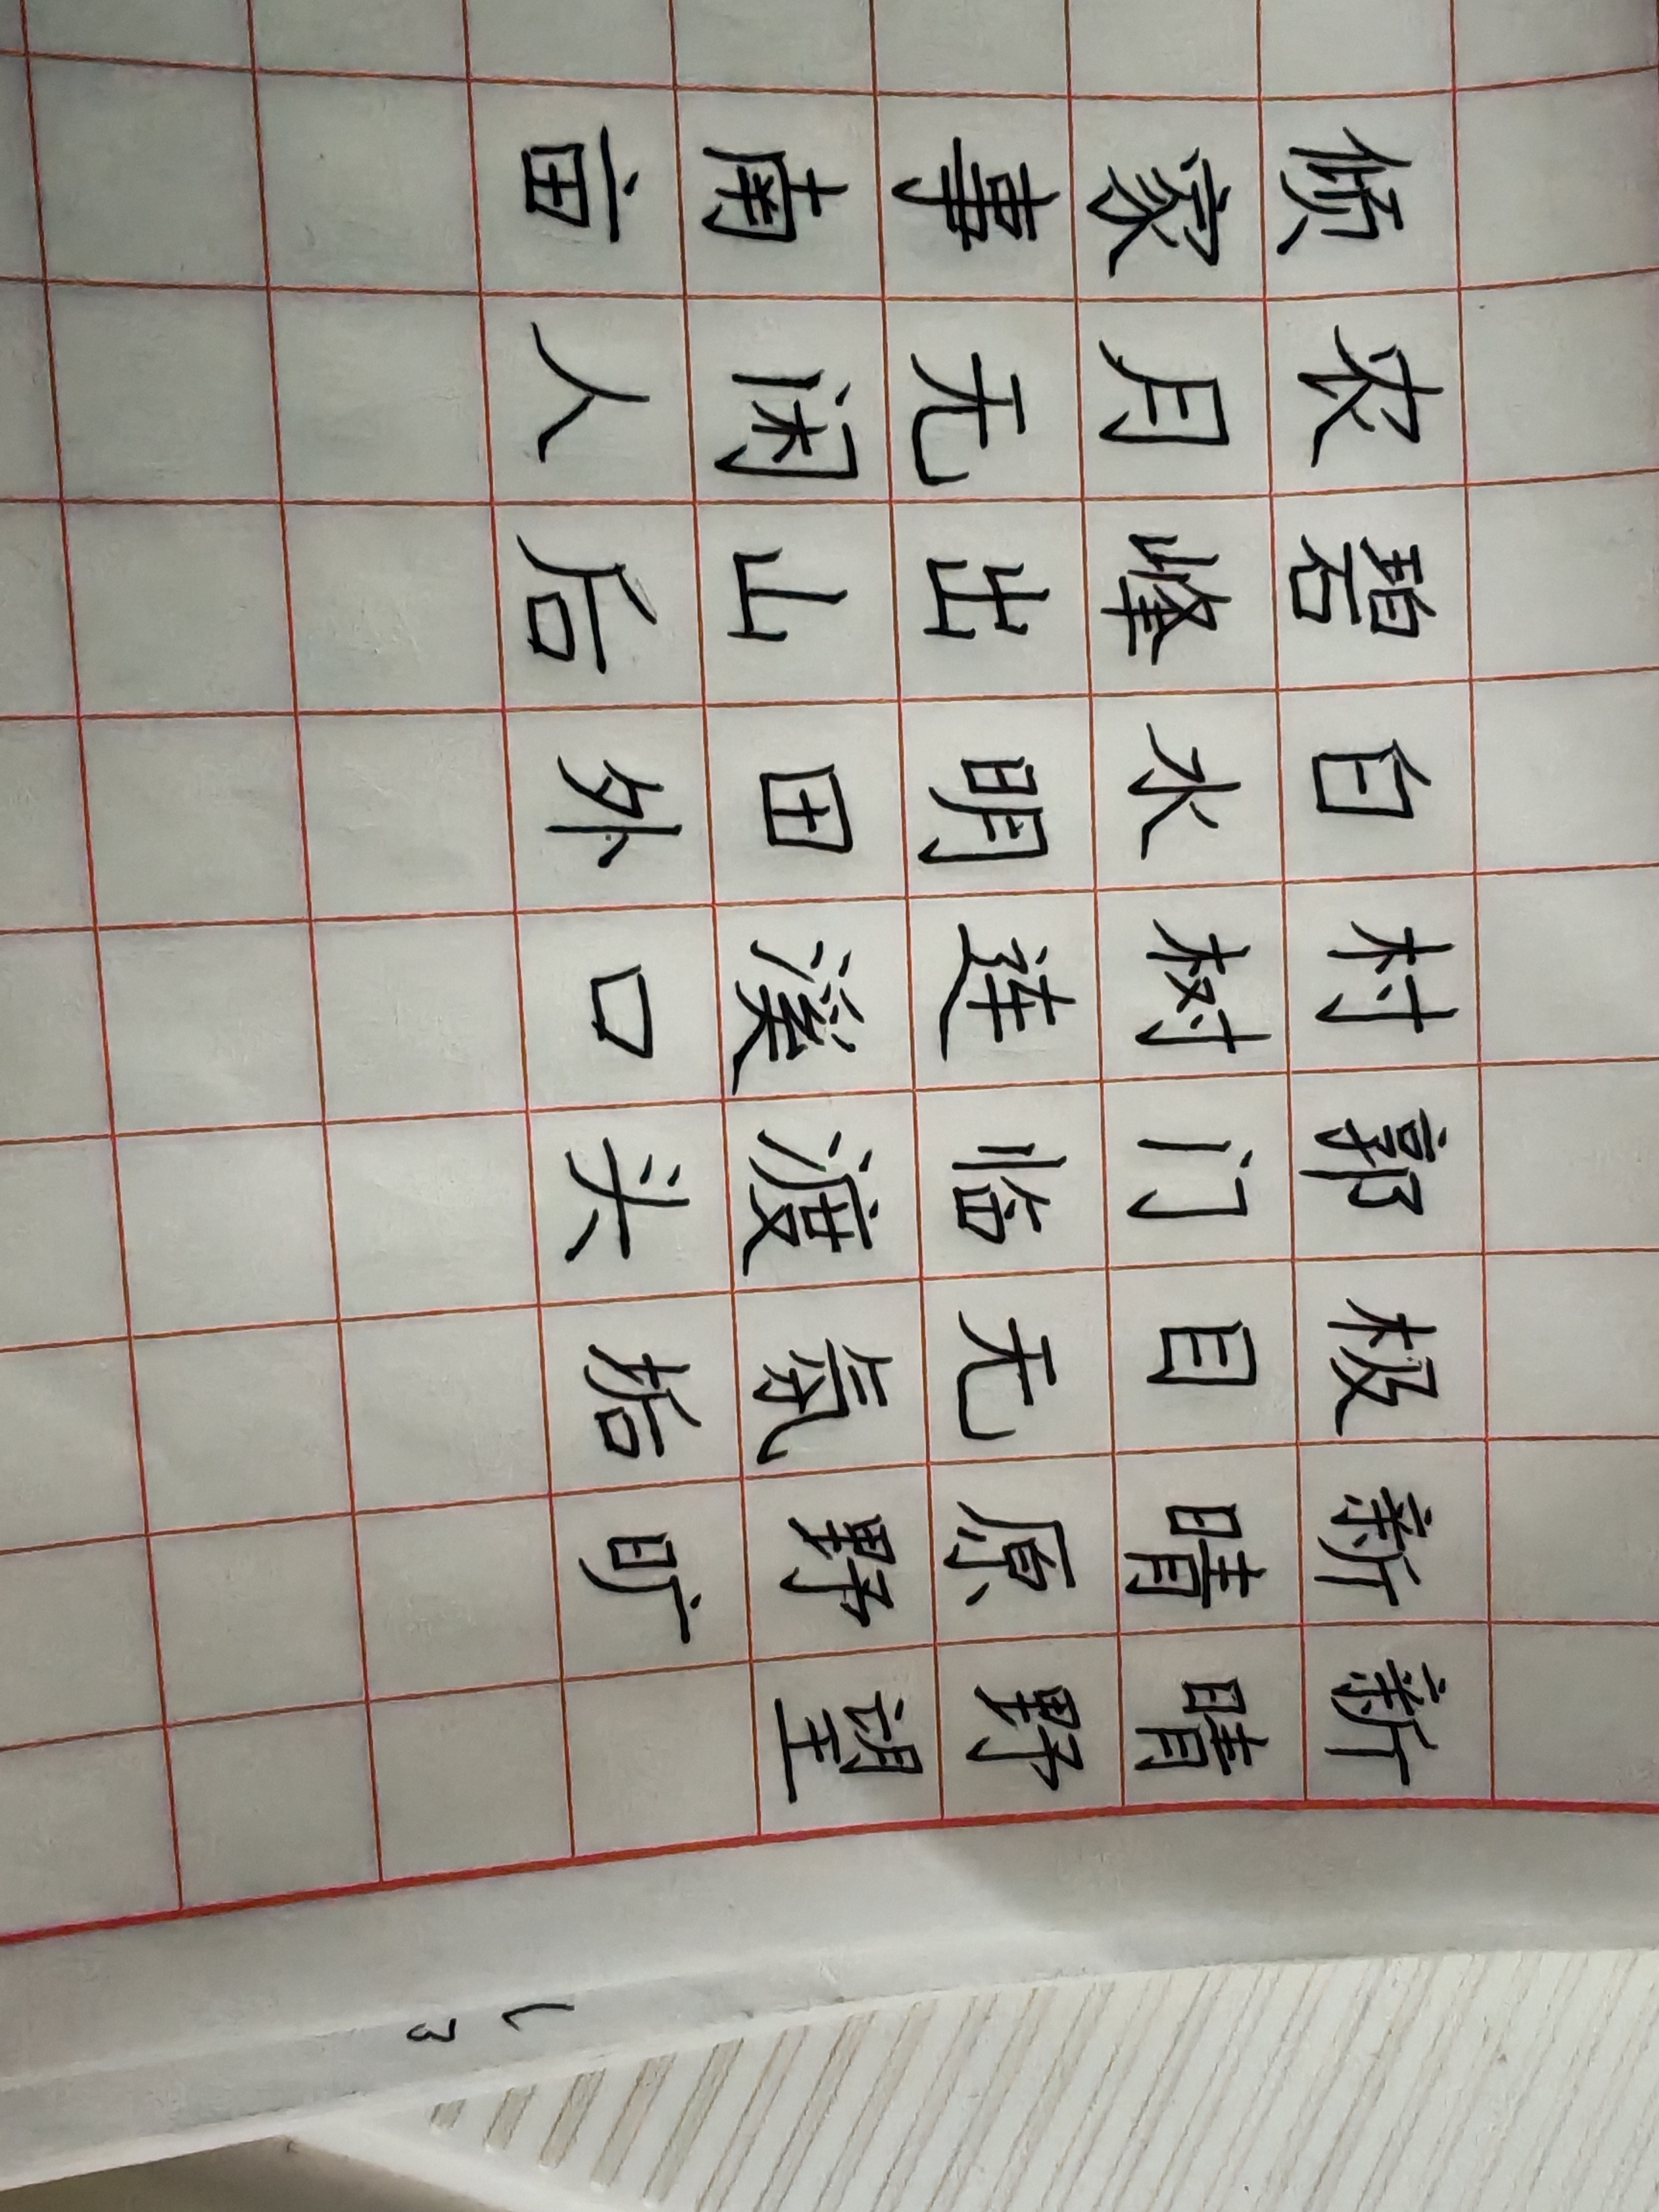 新晴野望
新晴原野旷
极目无氛垢
郭门临渡头
村树连溪口
白水明田外
碧峰出山后
农月无闲人
倾家事南亩
13